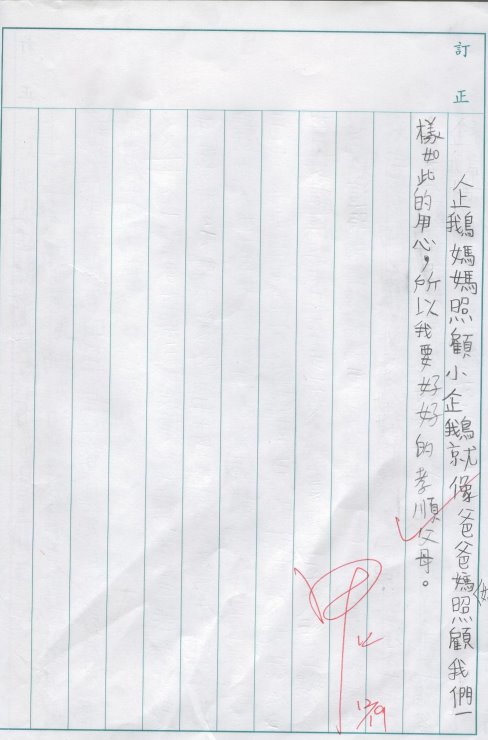 訂正
企鵝媽媽照顧小企鵝就像爸爸媽照顧我們一
樣如此的用心，所以我要好好的孝順父母。
甲
12/19